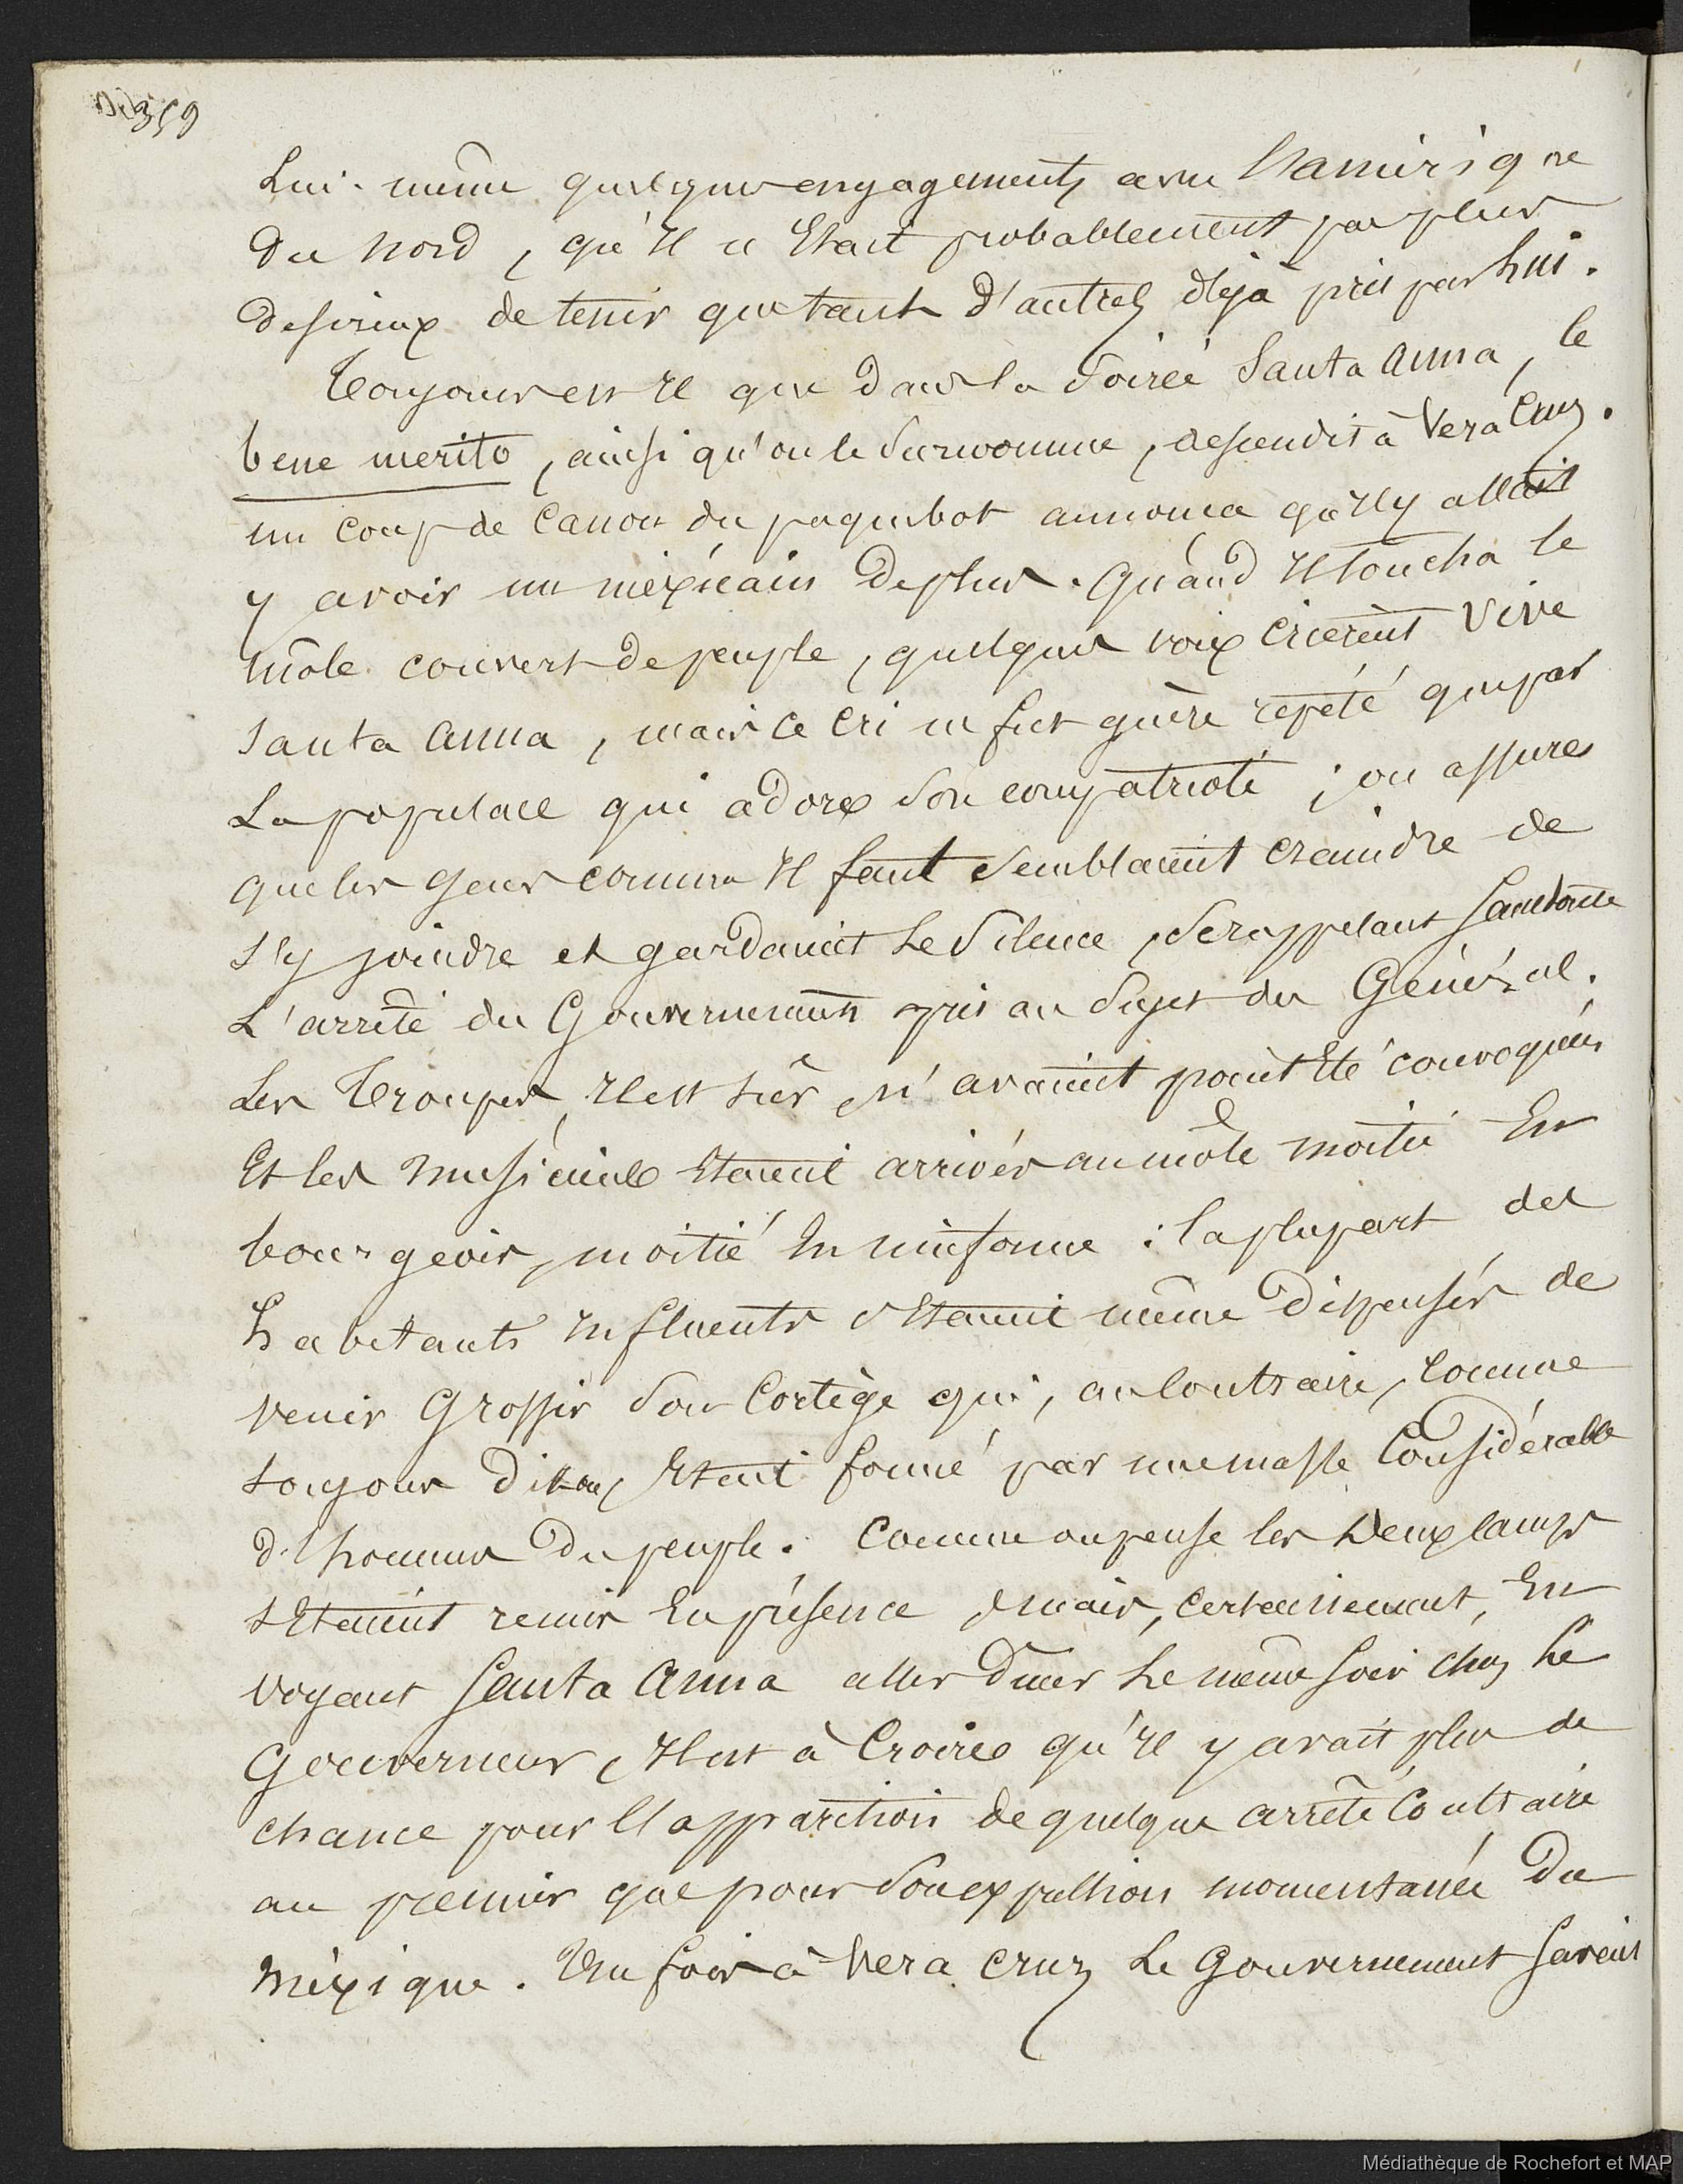 359
Lui-même quelques engagements avec l'amérique
du nord, qu'il n'Etait probablement pas plus
desireux de tenir que tant d'autres déjà pris par lui.
Toujours est il que dans la Soirée Santa Anna, le
bene merito, ainsi qu'on le Surnomme, descendit à Vera Cruz.
un coup de Canon du paquebot annonca qu'Il y allait
y avoir un méxicain de plus. Quand Il toucha le
môle couvert de peuple, quelques voix crièrent Vive
Santa Anna, mais ce cri ne fut guère répété que par
La populace qui adore Son compatriote ; on assure
que les gens comme Il faut Semblaient craindre de
s'y joindre et gardaient Le Silence, Se rappelant Sans doute
L'arrêté du Gouvernement pris au Sujet du Général.
Les Troupes, Il est sûr, n'avaient point Eté convoquées
Et les musiciens Etaient arrivés au môle moitié En
bourgeois, moitié En uniforme : la plupart des
habitants Influents s'Etaient même dispensés de
venir Grossir Son Cortège qui, au Contraire, Comme
toujours dit-on, Etait formé par une masse Considérable
d'hommes du peuple. Comme on pense les deux camps
s'Etaient remis En présence, mais, certainement, En
voyant Santa Anna aller dîner Le même Soir chez Le
Gouverneur, Il est à Croire qu'Il y avait plus de
chance pour l'apparition de quelque arrêté Contraire
au premier que pour Son expulsion momentanée du
Méxique. Une fois à Vera Cruz Le Gouvernement Savait
Médiathèque de Rochefort et MAP